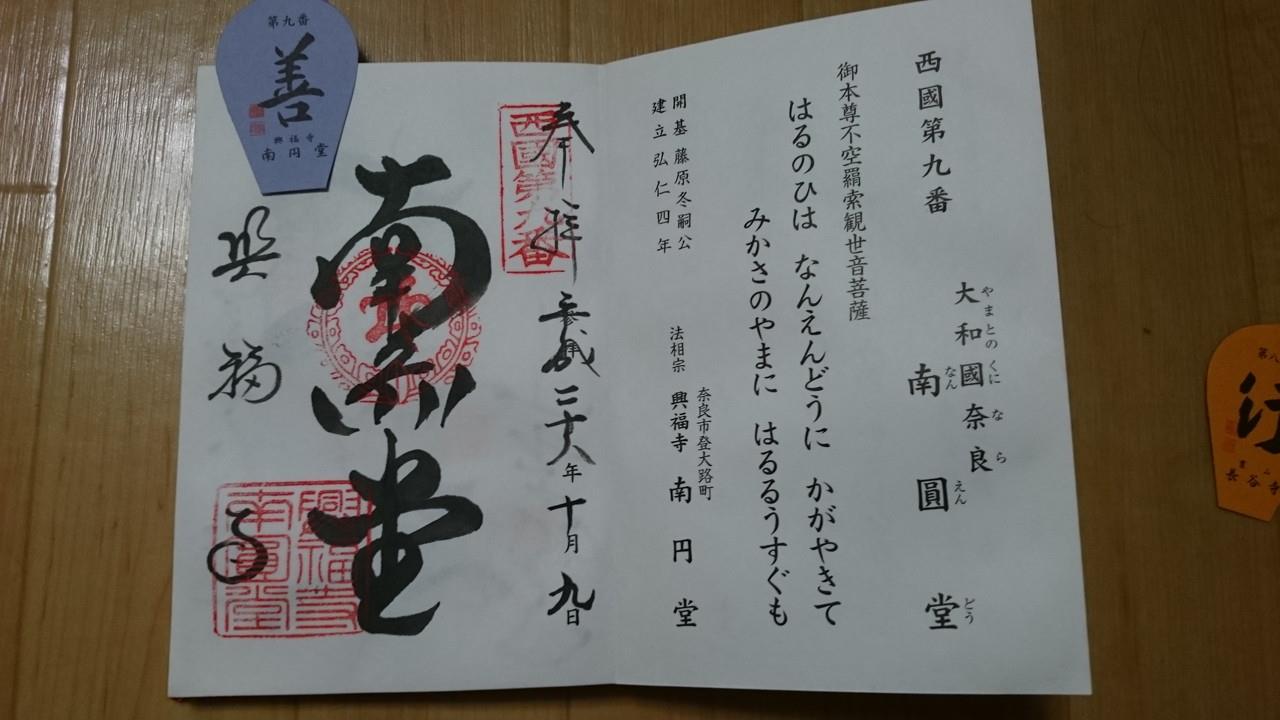 西國第九番
大和國奈良
やまとのくになら
南圓堂
なんえんどう
御本尊不空羂索観世音菩薩
はるのひは なんえんどうに かがやきて
みかさのやまに はるるうすぐも
開基 藤原冬嗣公
建立 弘仁四年
奈良市登大路町
法相宗 興福寺 南円堂
奉拝
西國第九番
平成二十八年十月九日
南円堂
興福寺
興福寺
南圓堂
第九番
善
興福寺
南円堂
行
長谷寺